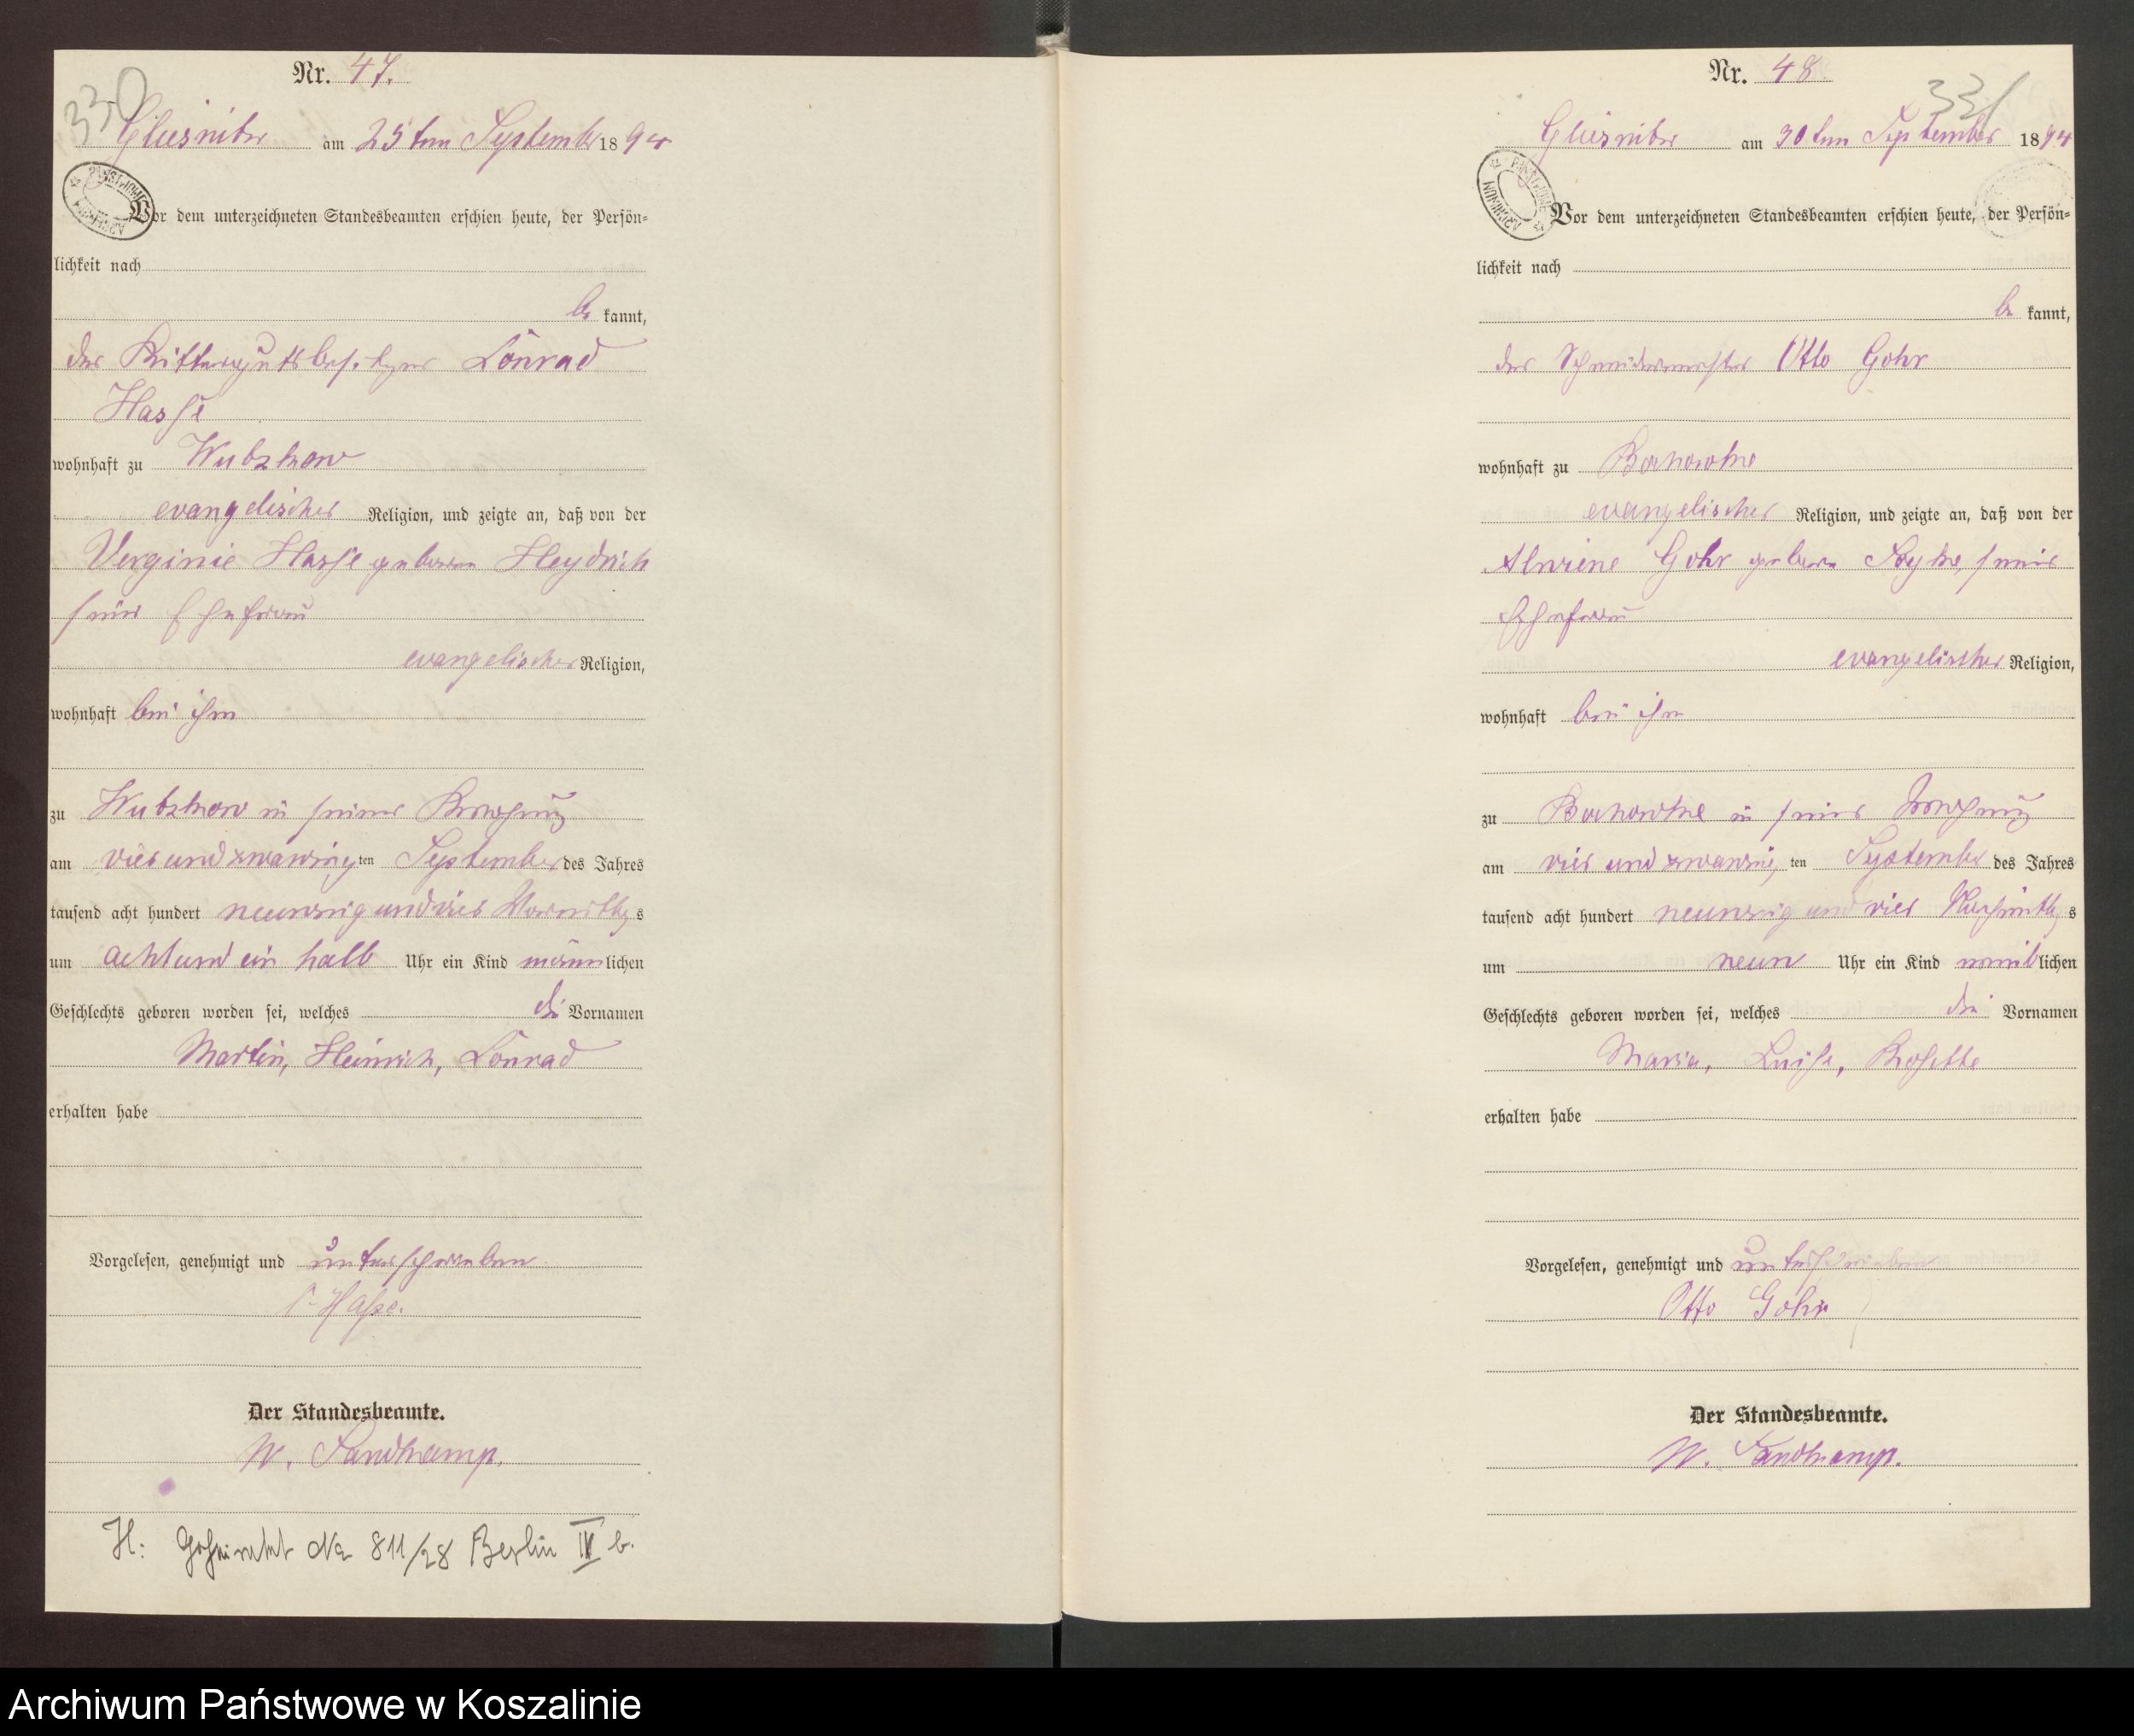 Nr. 47.
330
am 25ten September 1894
Vor dem unterzeichneten Standesbeamten erschien heute, der Persön=
lichkeit nach
be kannt,
der Rittergutsbesitzer Conrad
Hasse
wohnhaft zu Wutzkow
evangelischer Religion, und zeigte an, daß von der
Verginie Hasse geboren Heydrich
seiner Ehefrau
evangelischer Religion,
wohnhaft bei ihm
zu Wutzkow in seiner Wohnung
am vier und zwanzig ten September des Jahres
tausend acht hundert neunzig und vier Vormittags
um acht und ein halb Uhr ein Kind männlichen
Geschlechts geboren worden sei, welches die Vornamen
Martin, Heinrich, Conrad
erhalten habe
Vorgelesen, genehmigt und unterschrieben
C. Hasse.
Der Standesbeamte.
W. Sandkamp.
H: Geheiratet No 811/28 Berlin IV b.
Nr. 48
331
am 30ten September 1894
Vor dem unterzeichneten Standesbeamten erschien heute, der Persön=
lichkeit nach
be kannt,
der Schneidermeister Otto Gohr
wohnhaft zu
evangelischer Religion, und zeigte an, daß von der
Alwine Gohr geboren seiner
Ehefrau
evangelischer Religion,
wohnhaft bei ihm
zu in seiner Wohnung
am vier und zwanzig ten September des Jahres
tausend acht hundert neunzig und vier Nachmittags
um neun Uhr ein Kind weiblichen
Geschlechts geboren worden sei, welches die Vornamen
Maria, Luise, Rosette
erhalten habe
Vorgelesen, genehmigt und unterschrieben
Otto Gohr
Der Standesbeamte.
W. Sandkamp.
Archiwum Państwowe w Koszalinie